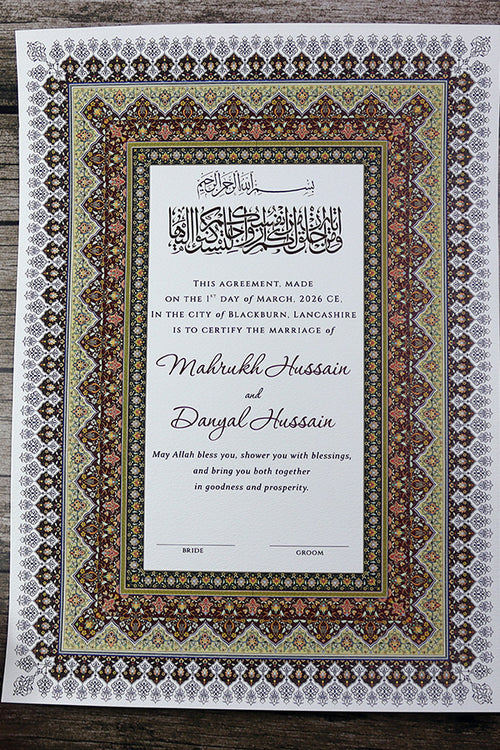 بسم الله الرحمن الرحيم
THIS AGREEMENT, MADE
ON THE 1ST DAY OF MARCH, 2026 CE,
IN THE CITY OF BLACKBURN, LANCASHIRE
IS TO CERTIFY THE MARRIAGE of
Mahrukh Hussain
and
Danyal Hussain
May Allah bless you, shower you with blessings,
and bring you both together
in goodness and prosperity.
BRIDE GROOM